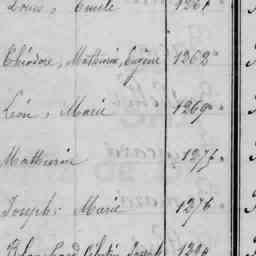 Louis, Emile 1261
Théodore, Mathurin, Eugène 1262
Léon, Marie 1269
Mathurin 1277
Joseph, Marie 1276
Joseph